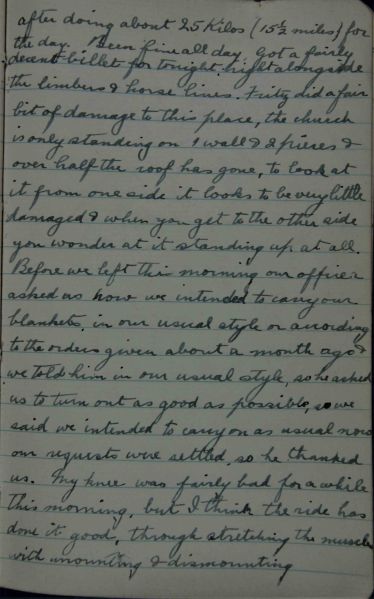 after doing about 25 Kilos (15½ miles) for
the day. Been fine all day. Got a fairly
decent billet for tonight right alongside
the limbers & horse lines. Fritz did a fair
bit of damage to this place, the church
is only standing on 1 wall & 2 pieres &
over half the roof has gone, to look at
it from one side it looks to be very little
damaged & when you get to the other side
you wonder at it standing up at all.
Before we left this morning our officer
asked us how we intended to carry our
blankets, in our usual style or according
to the orders given about a month ago &
we told him in our usual style, so he asked
us to turn out as good as possible, so we
said we intended to carry on as usual now
our requests were settled, so he thanked
us. My knee was fairly bad for a while
this morning, but I think the ride has
done it good, through stretching the muscles
with mounting & dismounting